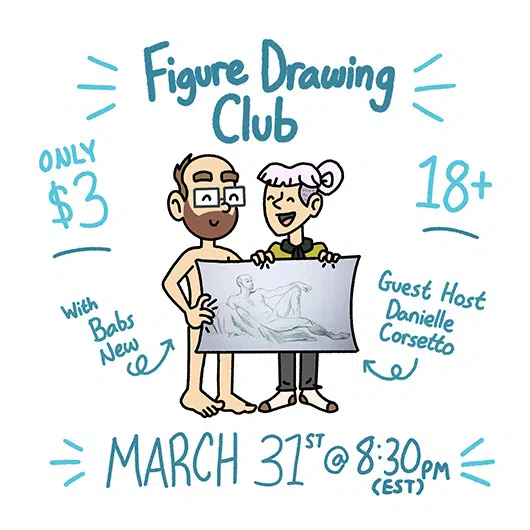 Figure Drawing
Club
ONLY
$3
18+
With
Babs
New
Guest Host
Danielle
Corsetto
MARCH 31ST @ 8:30PM
(EST)